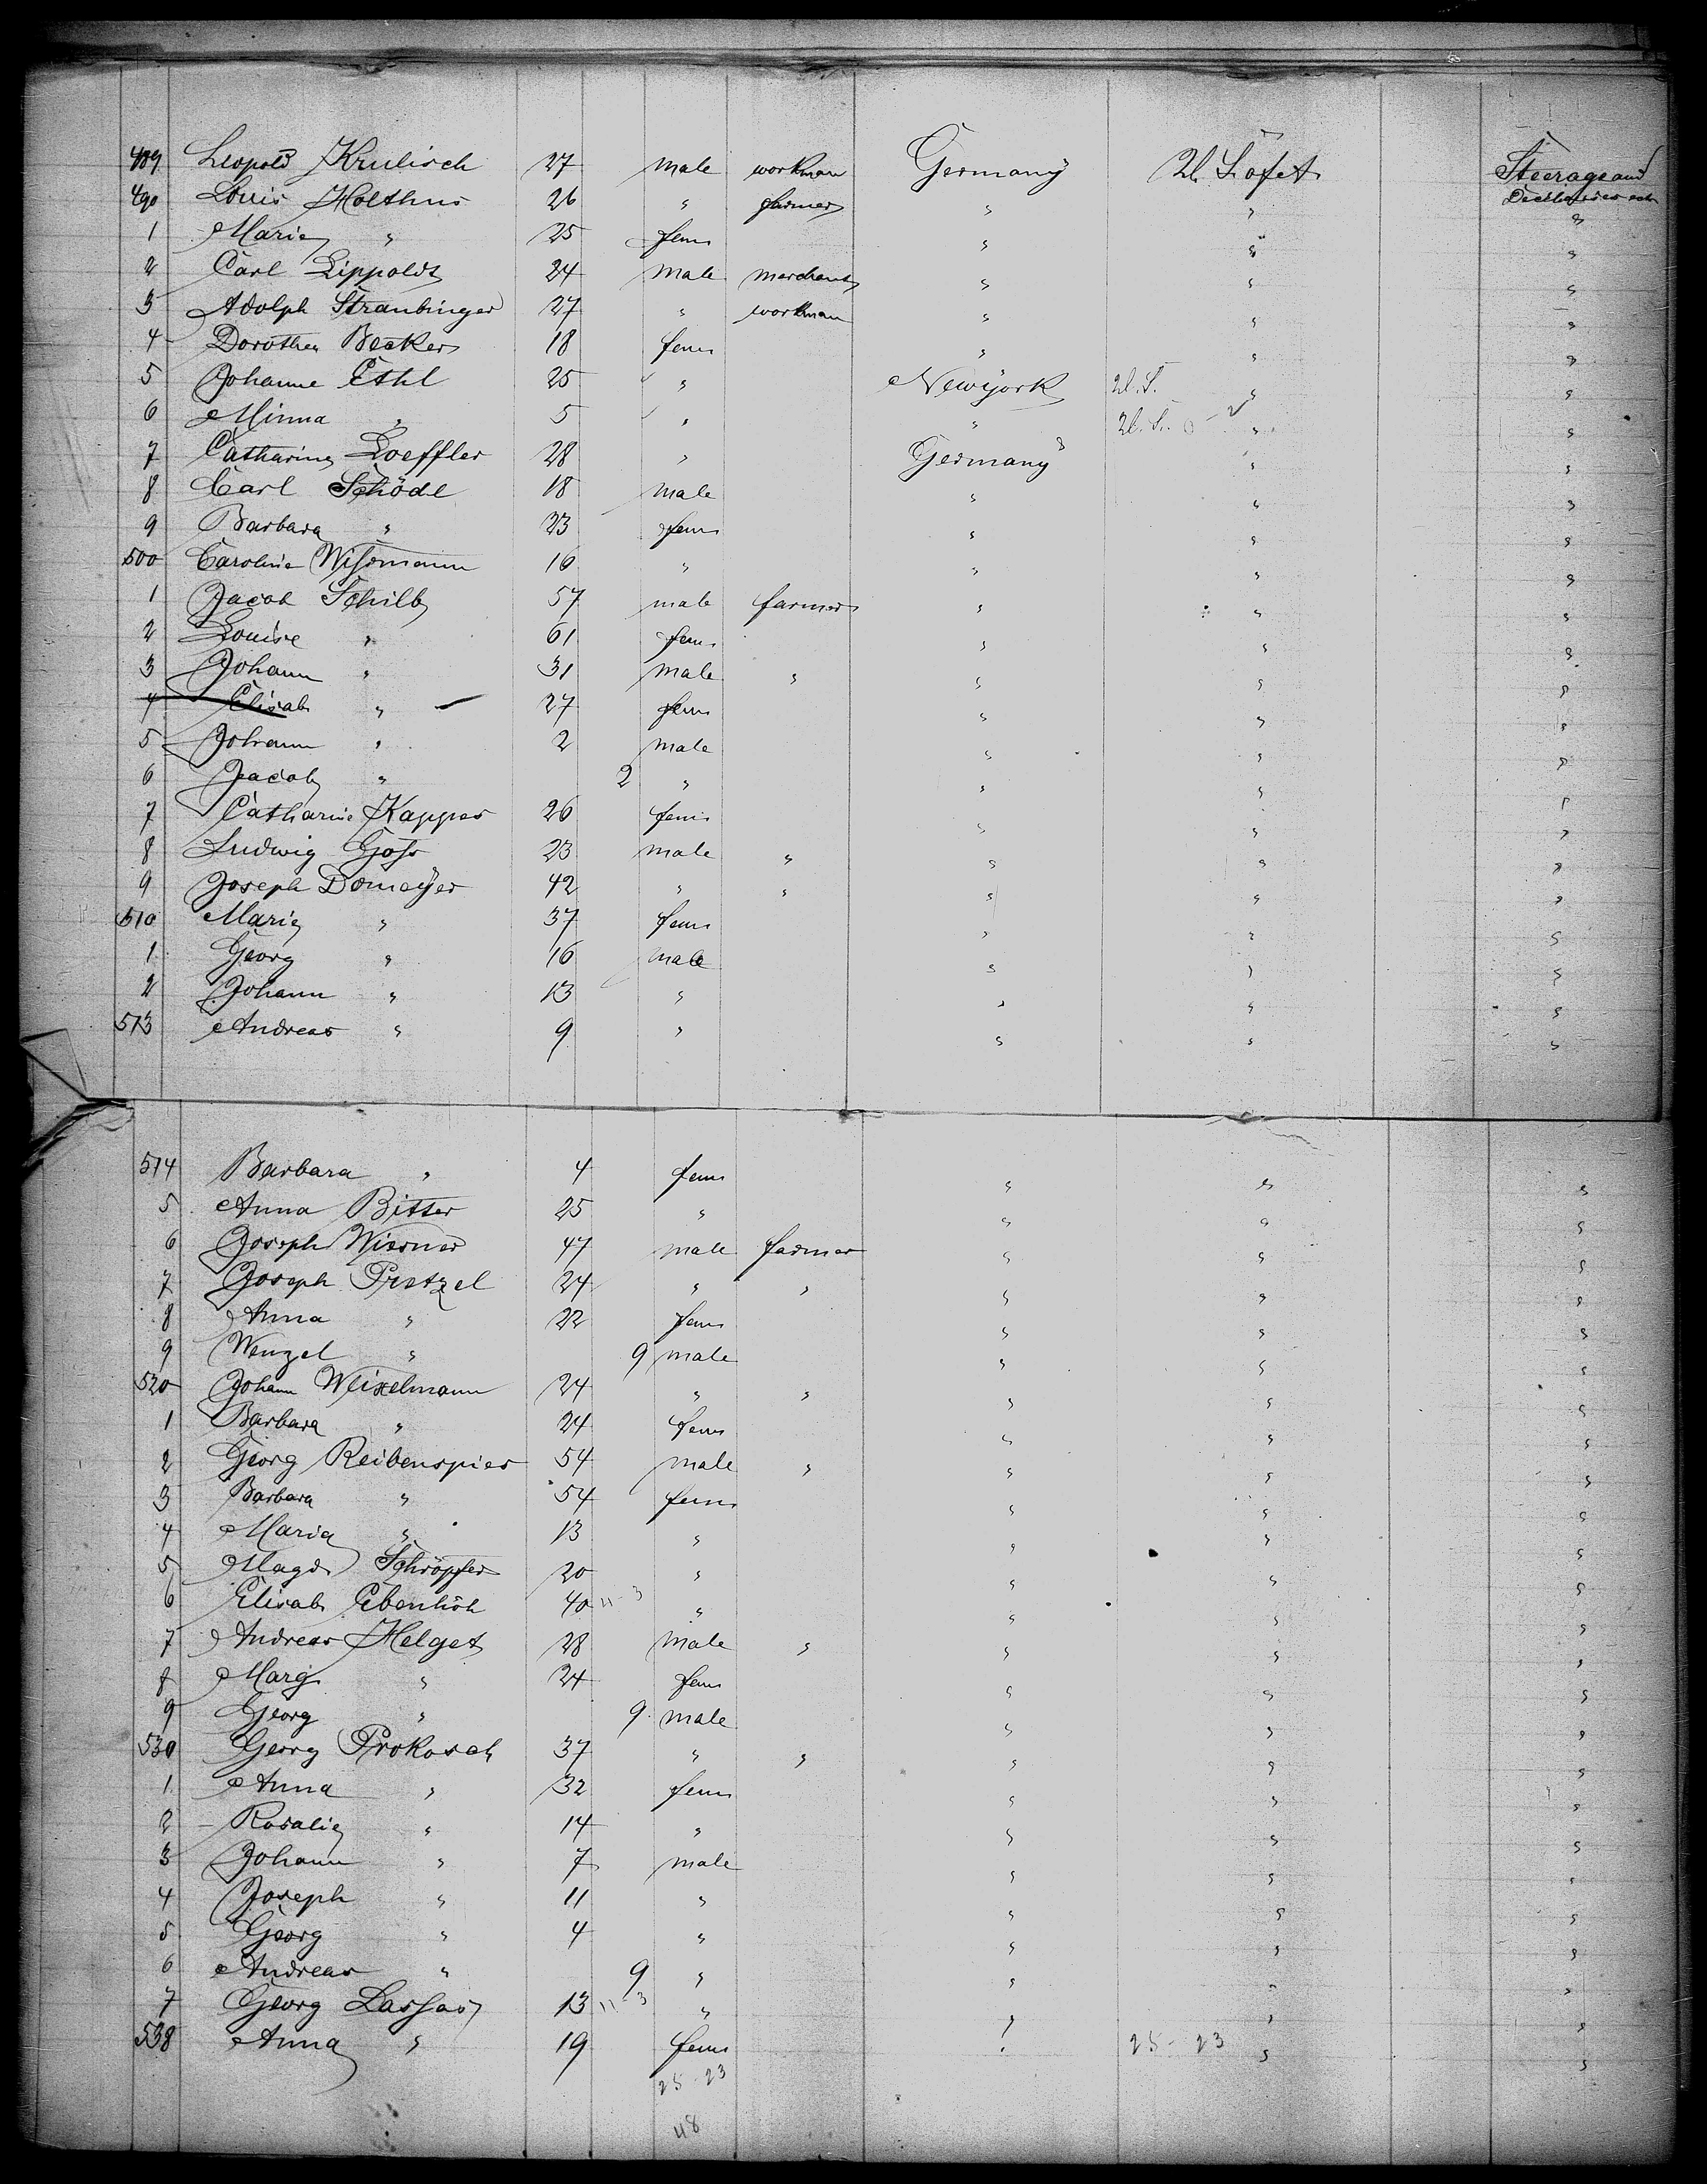 489 Leopold Krulisch 27 male workman Germany U. Stat Steerage and
490 Louis Holthus 26 " farmer " " "
1 Marie " 25 fem " " "
2 Carl Lippoldt 24 male merchant " " "
3 Adolph Straubinger 27 " workman " " "
4 Dorothea Becker 18 fem " " "
5 Johanne Ethl 25 " Newyork " "
6 Minna " 5 " " " "
7 Catharina Loeffler 28 " Germany " "
8 Carl Schödl 18 male " " "
9 Barbara " 23 fem " " "
500 Caroline Wißmann 16 " " " "
1 Jacob Schilb 57 male farmer " " "
2 Louise " 61 fem " " "
3 Johann " 31 male " " " "
4 Elisab " 27 fem " " "
5 Johann " 2 male " " "
6 Jacob " 2 " " " "
7 Catharine Kappes 26 fem " " "
8 Ludwig Goß 23 male " " " "
9 Joseph Domeyer 42 " " " " "
510 Marie " 37 fem " " "
1 Georg " 16 male " " "
2 Johann " 13 " " " "
513 Andreas " 9 " " " "
514 Barbara " 4 fem " " "
5 Anna Bitter 25 " " " "
6 Joseph Wiesner 47 male farmer " " "
7 Joseph Pretzel 24 " " " " "
8 Anna " 22 fem " " "
9 Wenzel " 9 male " " "
520 Johann Weixelmann 24 " " " " "
1 Barbara " 24 fem " " "
2 Georg Reibenspies 54 male " " " "
3 Barbara " 54 fem " " "
4 Maria " 13 " " " "
5 Magd Schröpfer 20 " " " "
6 Elisab Ebenhöh 40 11-3 " " " "
7 Andreas Helget 28 male " " " "
8 Marg " 24 fem " " "
9 Georg " 9 male " " "
530 Georg Prokosch 37 " " " " "
1 Anna " 32 fem " " "
2 Rosalie " 14 " " " "
3 Johann " 7 male " " "
4 Joseph " 11 " " " "
5 Georg " 4 " " " "
6 Andreas " 9 " " " "
7 Georg Lassas 13 11-3 " " " "
538 Anna " 19 fem " 25-23 " "
25-23
48